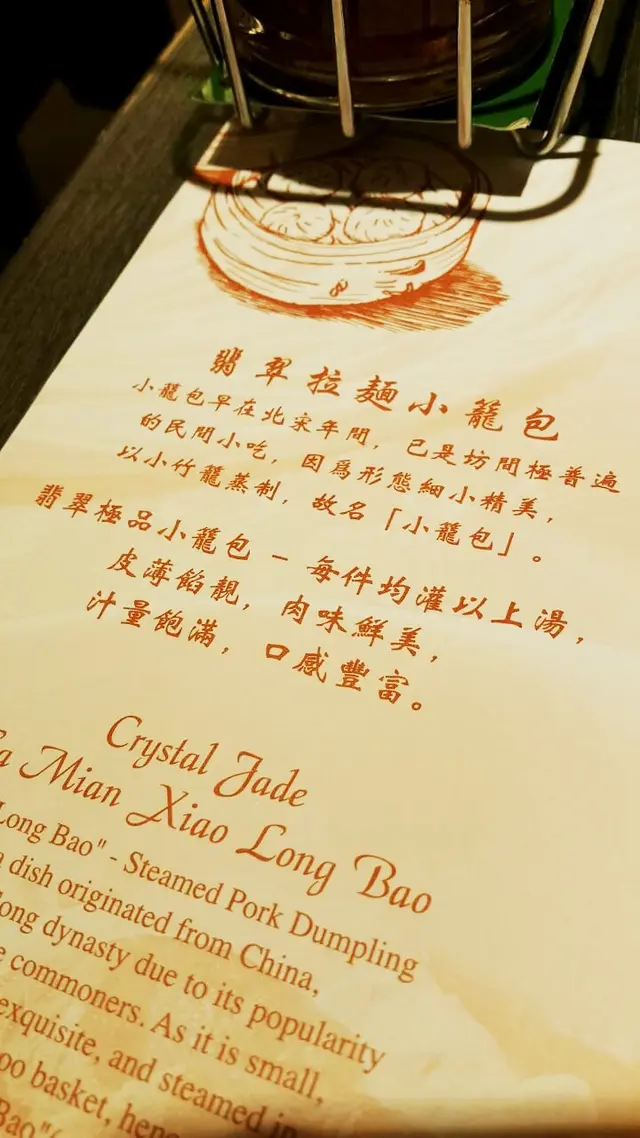 翡翠拉麵小籠包
小籠包早在北宋年間，已是坊間極普遍
的民間小吃，因爲形態細小精美，
以小竹籠蒸制，故名「小籠包」。
翡翠極品小籠包 - 每件均灌以上湯，
皮薄餡靚，肉味鮮美，
汁量飽滿，口感豐富。
Crystal Jade
Mian Xiao Long Bao
Long Bao" - Steamed Pork Dumpling
a dish originated from China,
dynasty due to its popularity
commoners. As it is small,
exquisite, and steamed in
basket,
Bao"